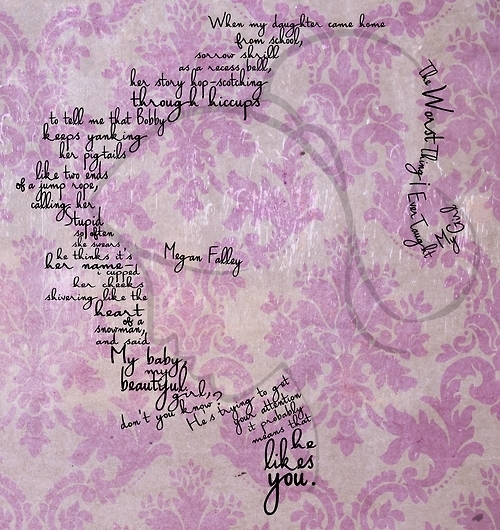 The Worst Thing I Ever Taught
My Girl
Megan Falley
When my daughter came home
from school,
sorrow shrill
as a recess bell,
her story hop-scotching
through hiccups
to tell me that Bobby
keeps yanking
her pigtails
like two ends
of a jump rope,
calling her
Stupid
so often
she swears
he thinks it's
her name–
i cupped
her cheeks
shivering like the
heart
of a
snowman,
and said
My baby,
my
beautiful
girl,
don't you know?
He's trying to get
your attention
it probably
means that
he
likes
you.